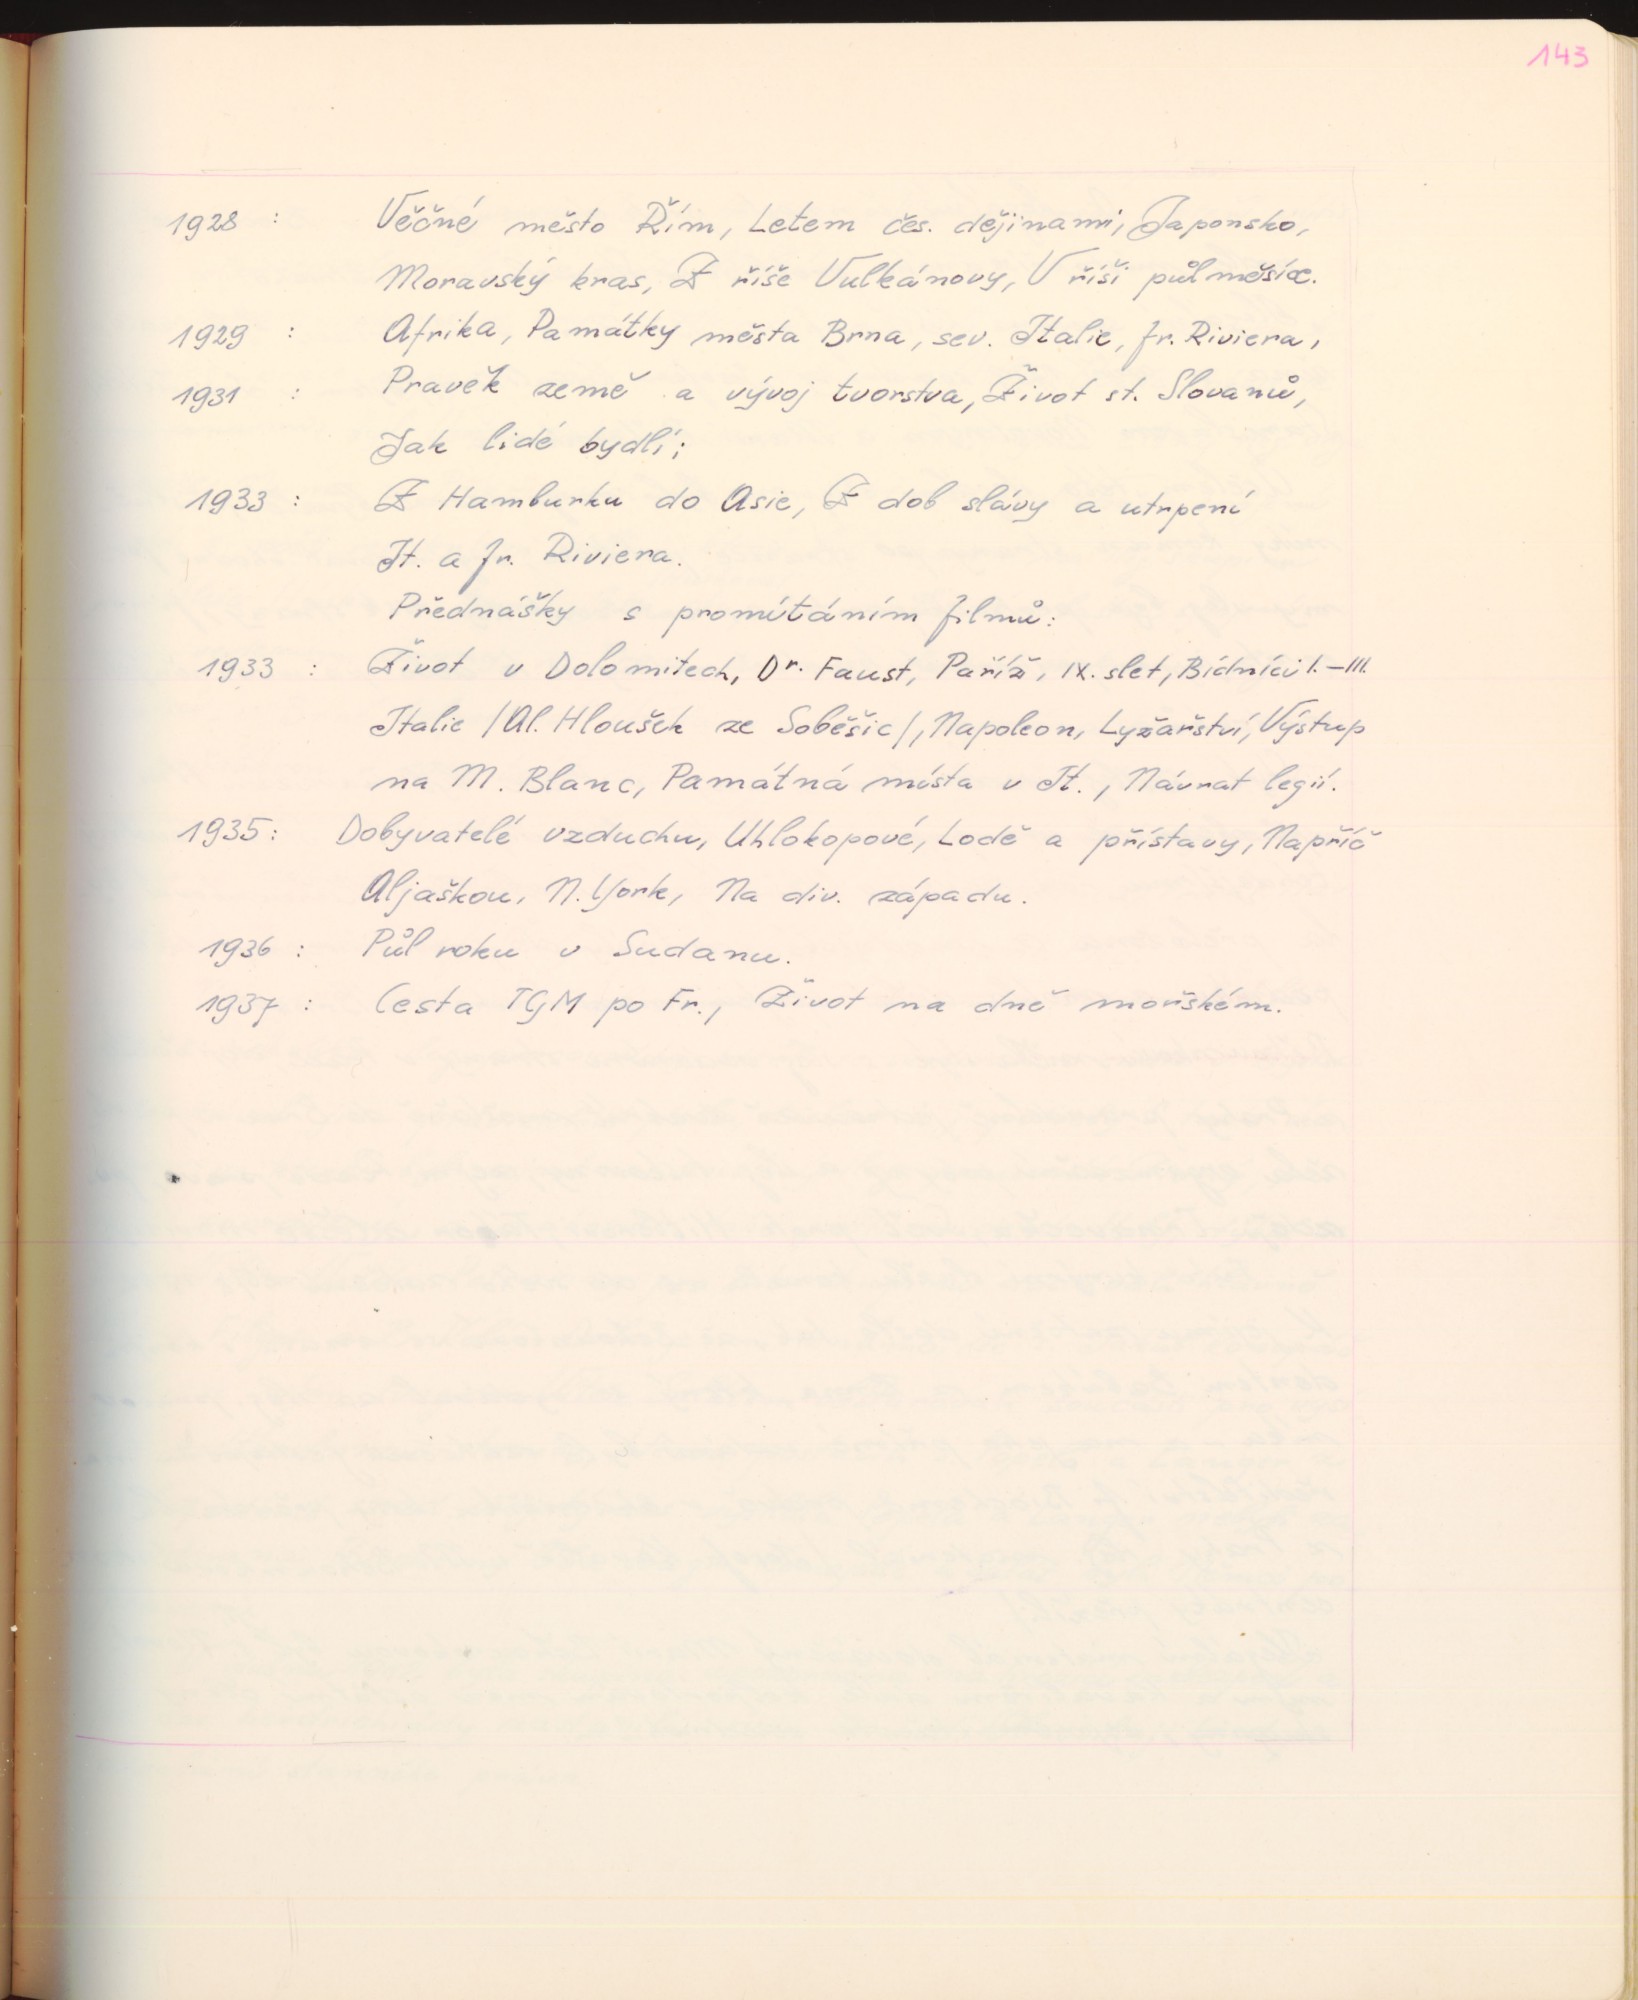 143
1928 : Věčné město Řím, Letem čes. dějinami, Japonsko,
Moravský kras, Z říše Vulkánovy, V říši půlměsíce.
1929 : Afrika, Památky města Brna, sev. Italie, fr. Riviera,
1931 : Pravěk země a vývoj tvorstva, Život st. Slovanů,
Jak lidé bydlí;
1933 : Z Hamburku do Asie, Z dob slávy a utrpení
It. a fr. Riviera.
Přednášky s promítáním filmů:
1933 : Život v Dolomitech, Dr. Faust, Paříž, IX. slet, Bídníci I.–III.
Italie /Al. Hloušek ze Soběšic/, Napoleon, Lyžařství, Výstup
na M. Blanc, Památná místa v It., Návrat legií.
1935: Dobyvatelé vzduchu, Uhlokopové, Lodě a přístavy, Napříč
Aljaškou, N. York, Na div. západu.
1936 : Půl roku v Sudanu.
1937 : Cesta TGM po Fr., Život na dně mořském.